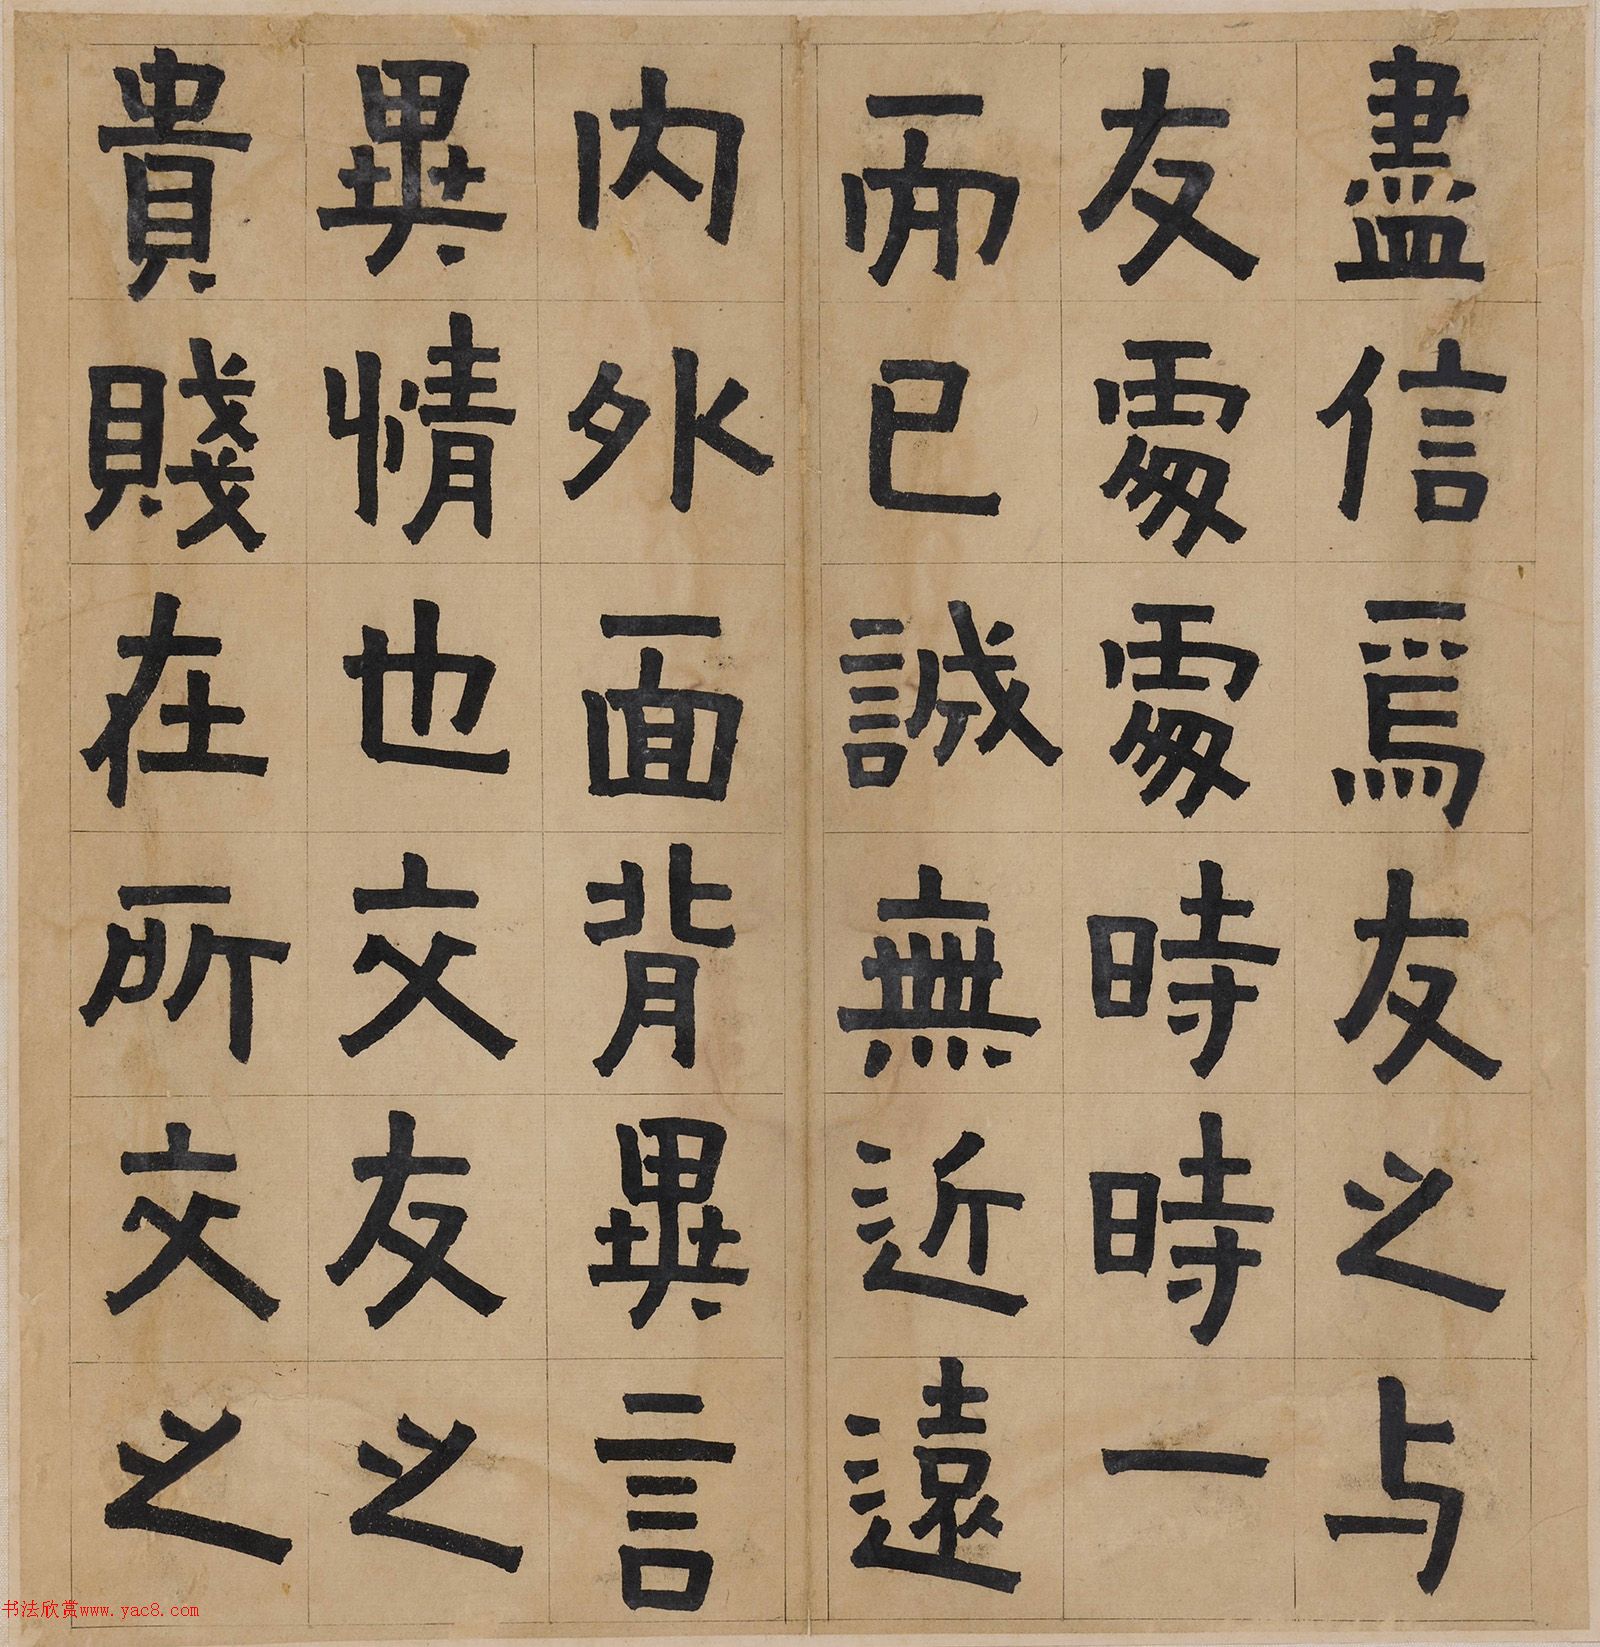 盡信焉友之与
友處處時時一
而已誠無近遠
內外面背異言
異情也交友之
貴賤在所交之
书法欣赏www.yac8.com